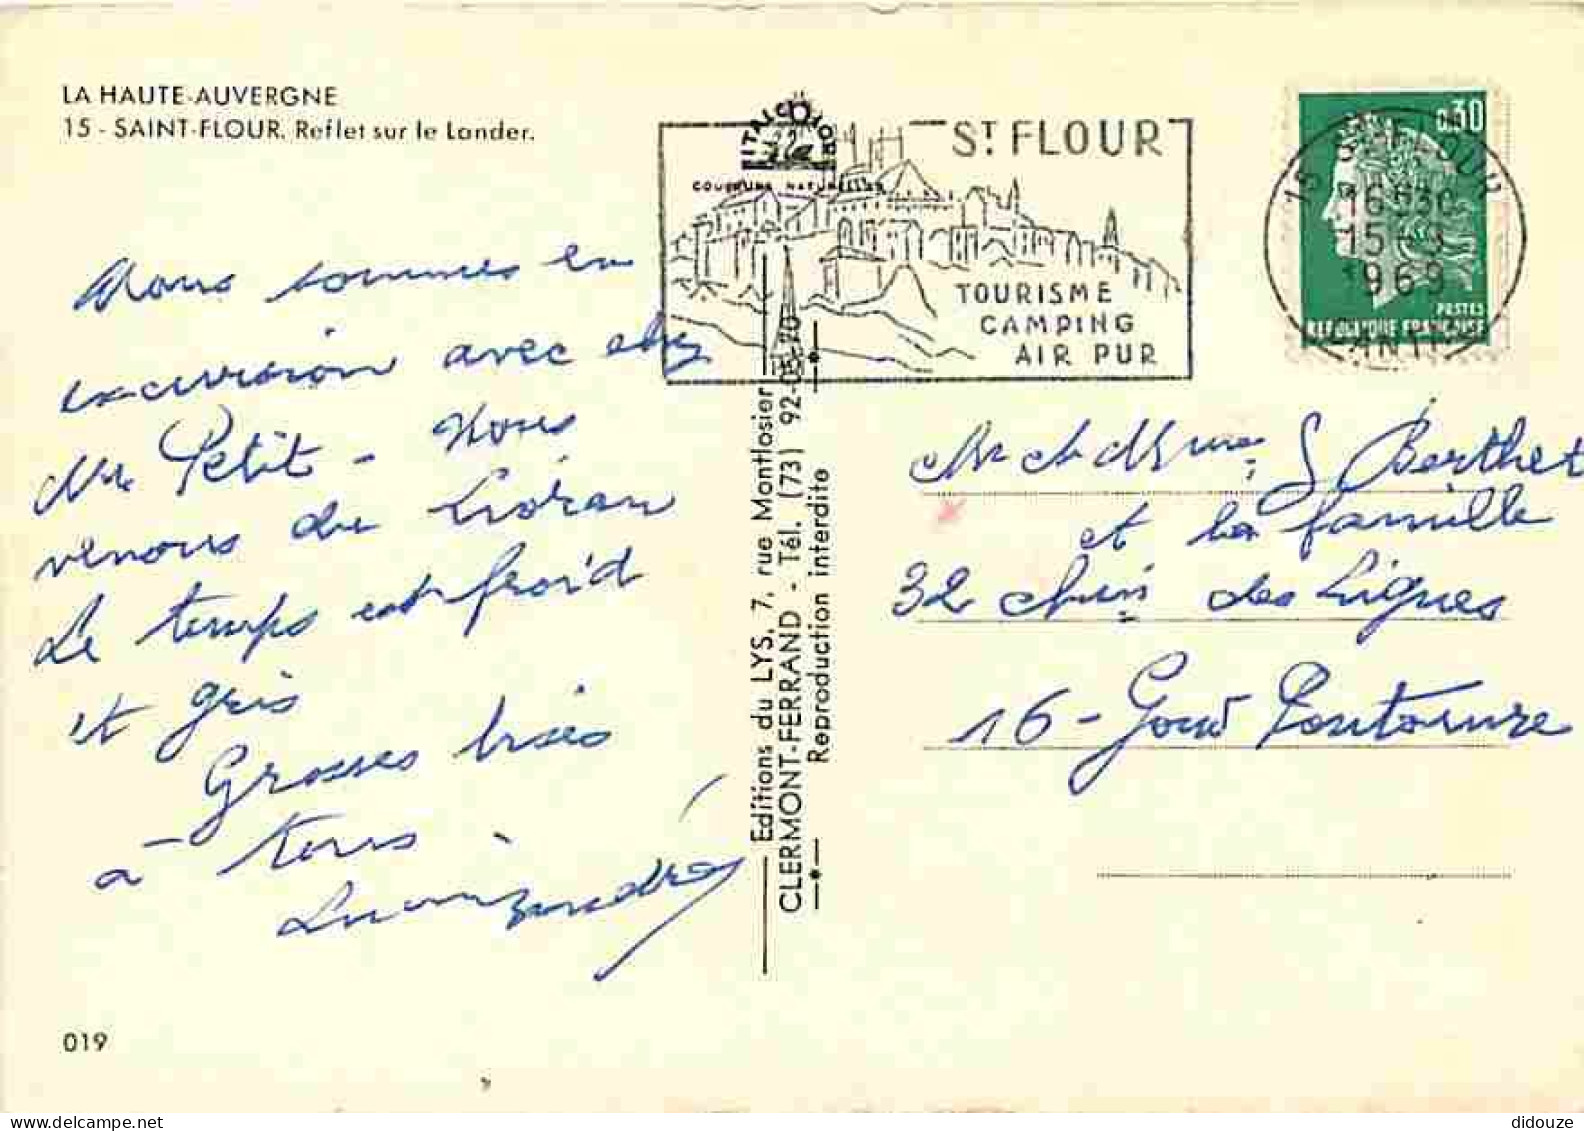 LA HAUTE-AUVERGNE
15 - SAINT-FLOUR. Reflet sur le Lander.
ST FLOUR
COULEURS NATURELLES
TOURISME
CAMPING
AIR PUR
0,30
POSTES
REPUBLIQUE FRANÇAISE
15 ST-FLOUR
16H30
15-9
1969
CANTAL
Nous sommes en
excursion avec
Petit - Nous
venons du Lioran
Le temps est froid
et gris
Grosses bises
à tous
Editions du LYS, 7, rue Montlosier
CLERMONT-FERRAND - Tél. (73) 92-05-20
Reproduction interdite
Mr et Mme Berthet
et la famille
32 chin des Lignes
16 - Gond Pontouvre
019
didouze